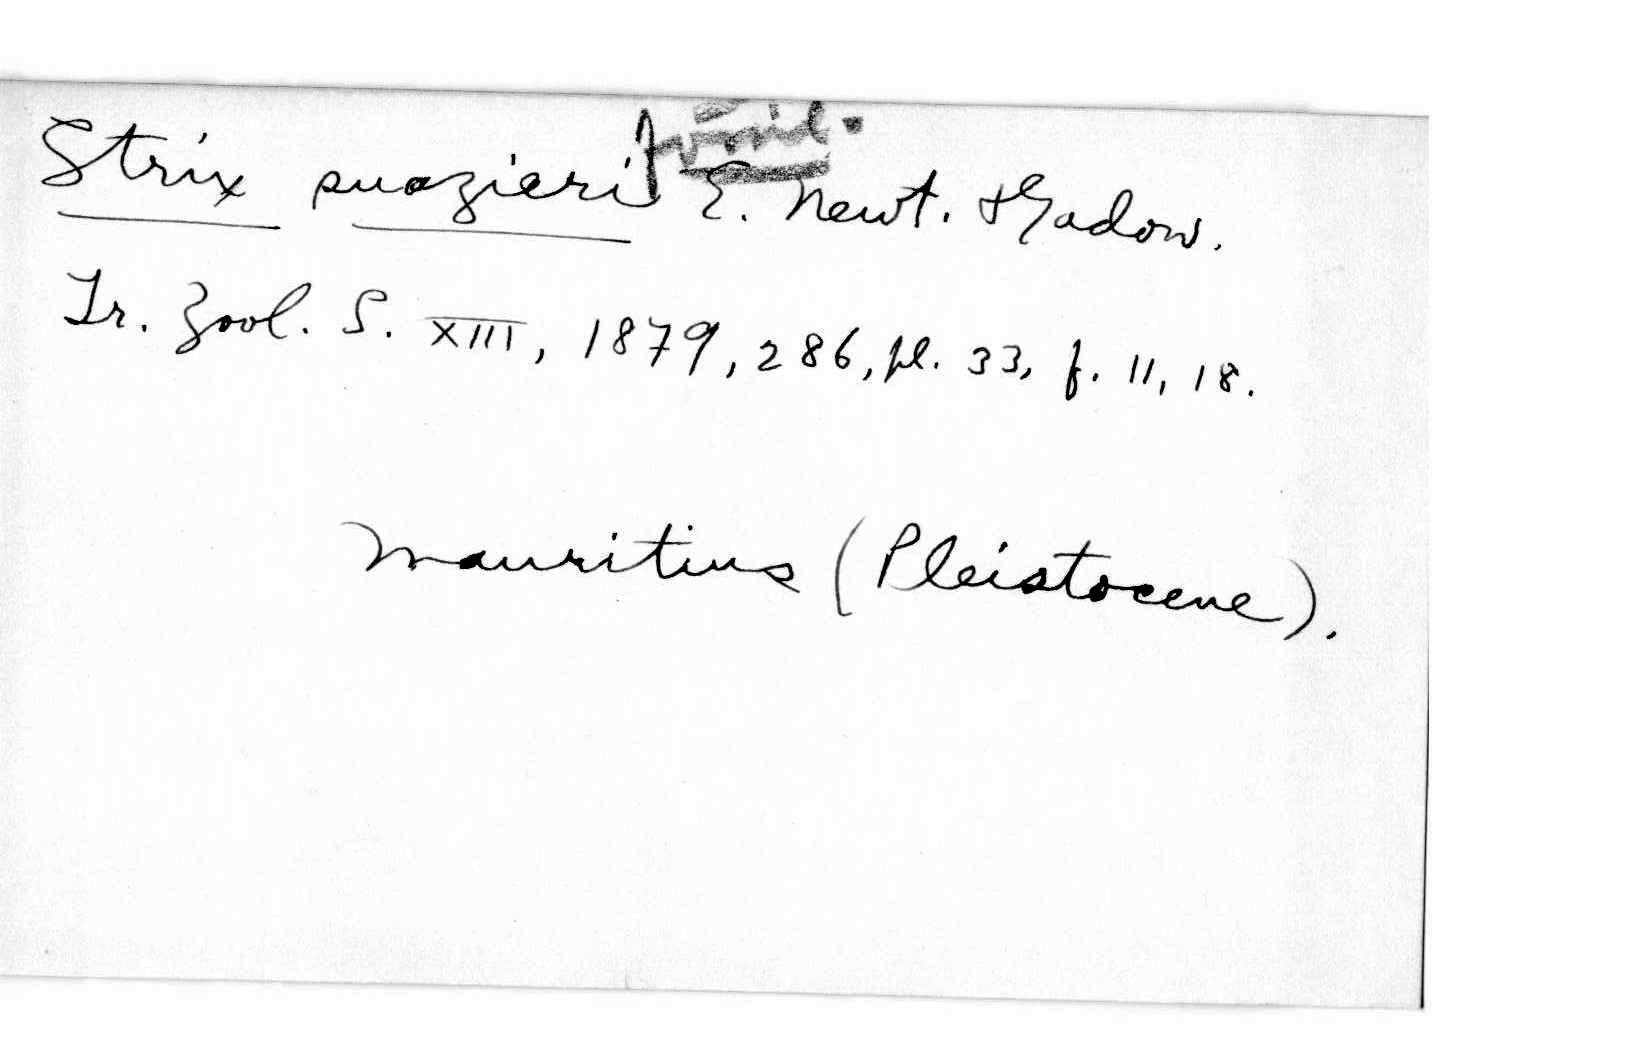 fossil.
Strix suazieri E. Newt. & Gadow.
Tr. Zool. S. XIII, 1879, 286, pl. 33, f. 11, 18.
Mauritius (Pleistocene).